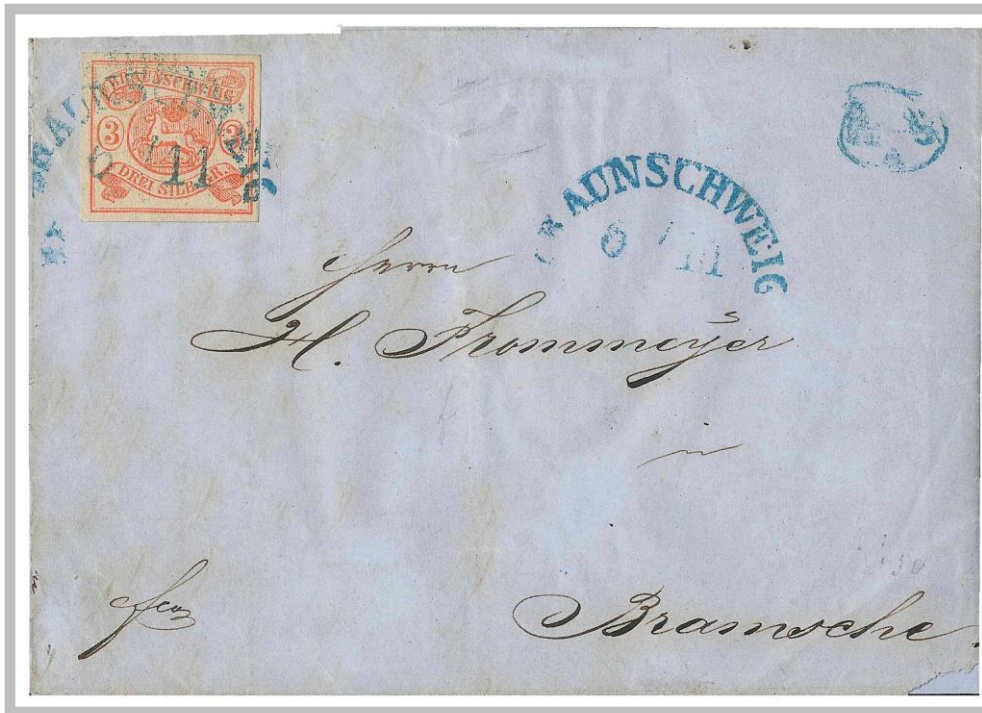 BRAUNSCHWEIG
3 3
DREI SILB.GR.
11
BRAUNSCHWEIG
6 11
Herrn
H. Frommeyer
in
fco
Bramsche.